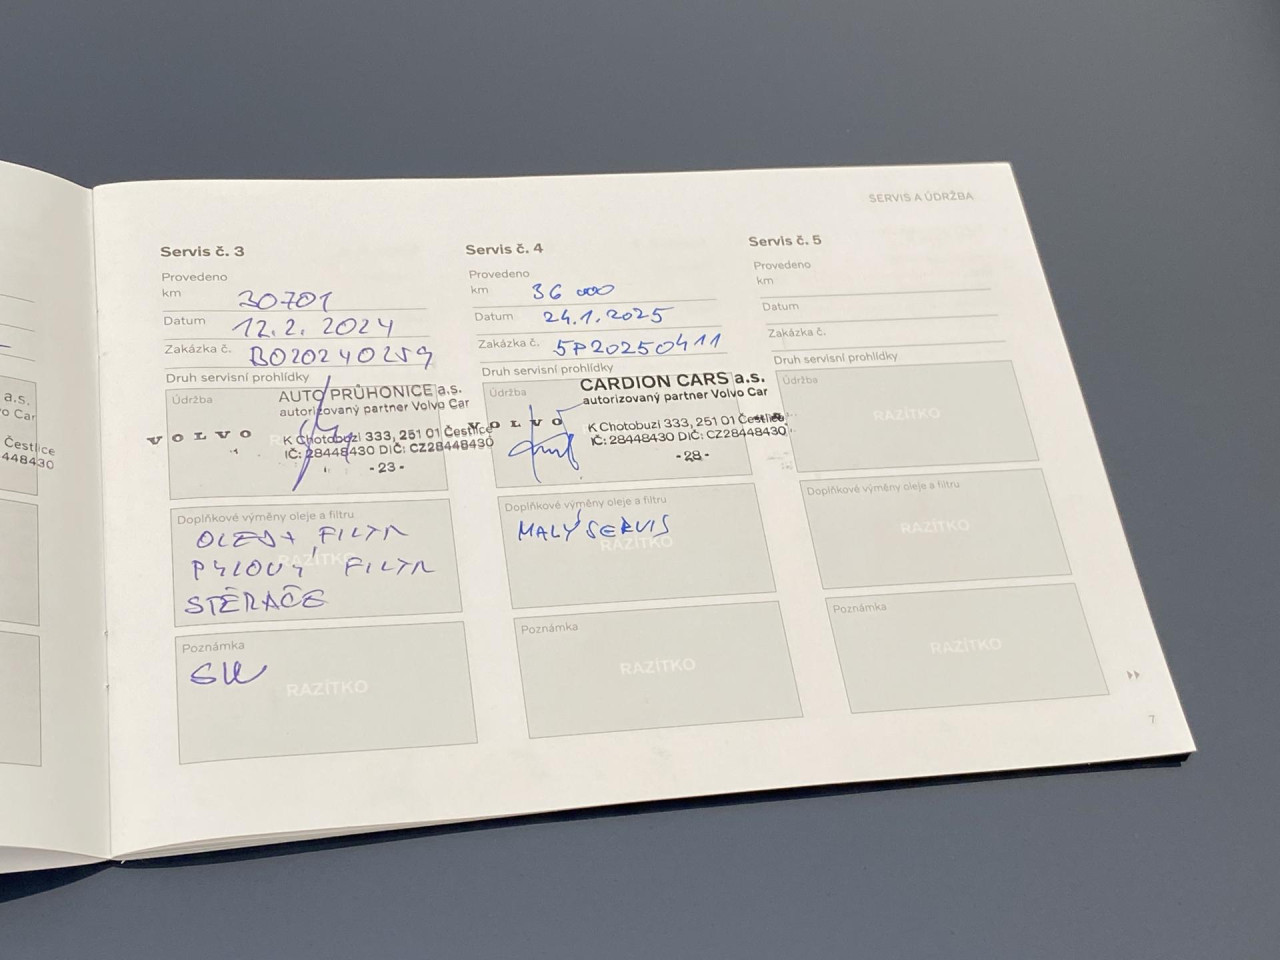 a.s.
o Car
Čestlice
448430
SERVIS A ÚDRŽBA
Servis č. 3
Provedeno
km 30701
Datum 12.2. 2024
Zakázka č. BO20240259
Druh servisní prohlídky
Údržba
AUTO PRŮHONICE a.s.
autorizovaný partner Volvo Car
VOLVO
K Chotobuzi 333, 251 01 Čestlice
IČ: 28448430 DIČ: CZ28448430
- 23 -
Doplňkové výměny oleje a filtru
OLEJ + FILTR
PYLOVÝ FILTR
STĚRAČE
RAZÍTKO
Poznámka
RAZÍTKO
Servis č. 4
Provedeno
km 36 000
Datum 24.1.2025
Zakázka č. 5P20250411
Druh servisní prohlídky
Údržba
CARDION CARS a.s.
autorizovaný partner Volvo Car
VOLVO
K Chotobuzi 333, 251 01 Čestlice
IČ: 28448430 DIČ: CZ28448430
- 28 -
Doplňkové výměny oleje a filtru
MALÝ SERVIS
RAZÍTKO
Poznámka
RAZÍTKO
Servis č. 5
Provedeno
km
Datum
Zakázka č.
Druh servisní prohlídky
Údržba
RAZÍTKO
Doplňkové výměny oleje a filtru
RAZÍTKO
Poznámka
RAZÍTKO
7